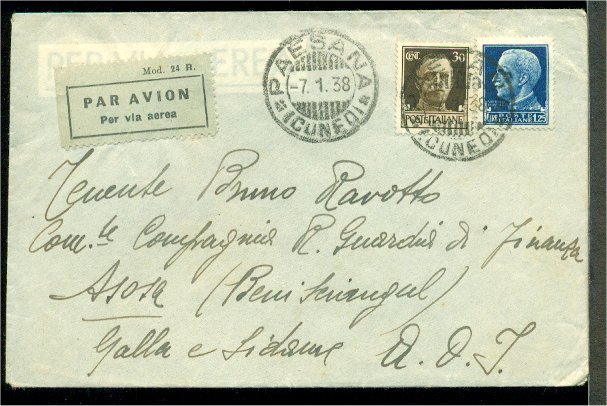 PER VIA AEREA
Mod. 24 R.
PAR AVION
Per via aerea
PAESANA
-7.1.38
(CUNEO)
CENT. 30
POSTE ITALIANE
POSTE ITALIANE
LIRE 1,25
(CUNEO)
Tenente Bruno Ravotto
Com.te Compagnia R. Guardia di Finanza
Asosa (Beni Sciangul)
Galla e Sidama A. O. I.